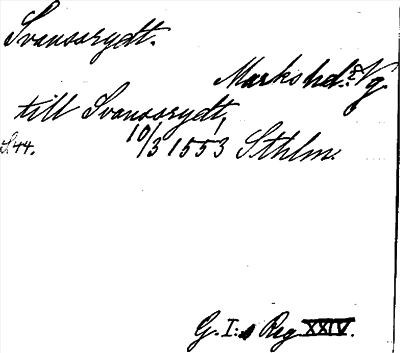 Svansorydt.
Marks hd. Vg.
till Svansorydt,
S. 44. 10/3 1553 Sthlm.
G. I:s Reg XXIV.